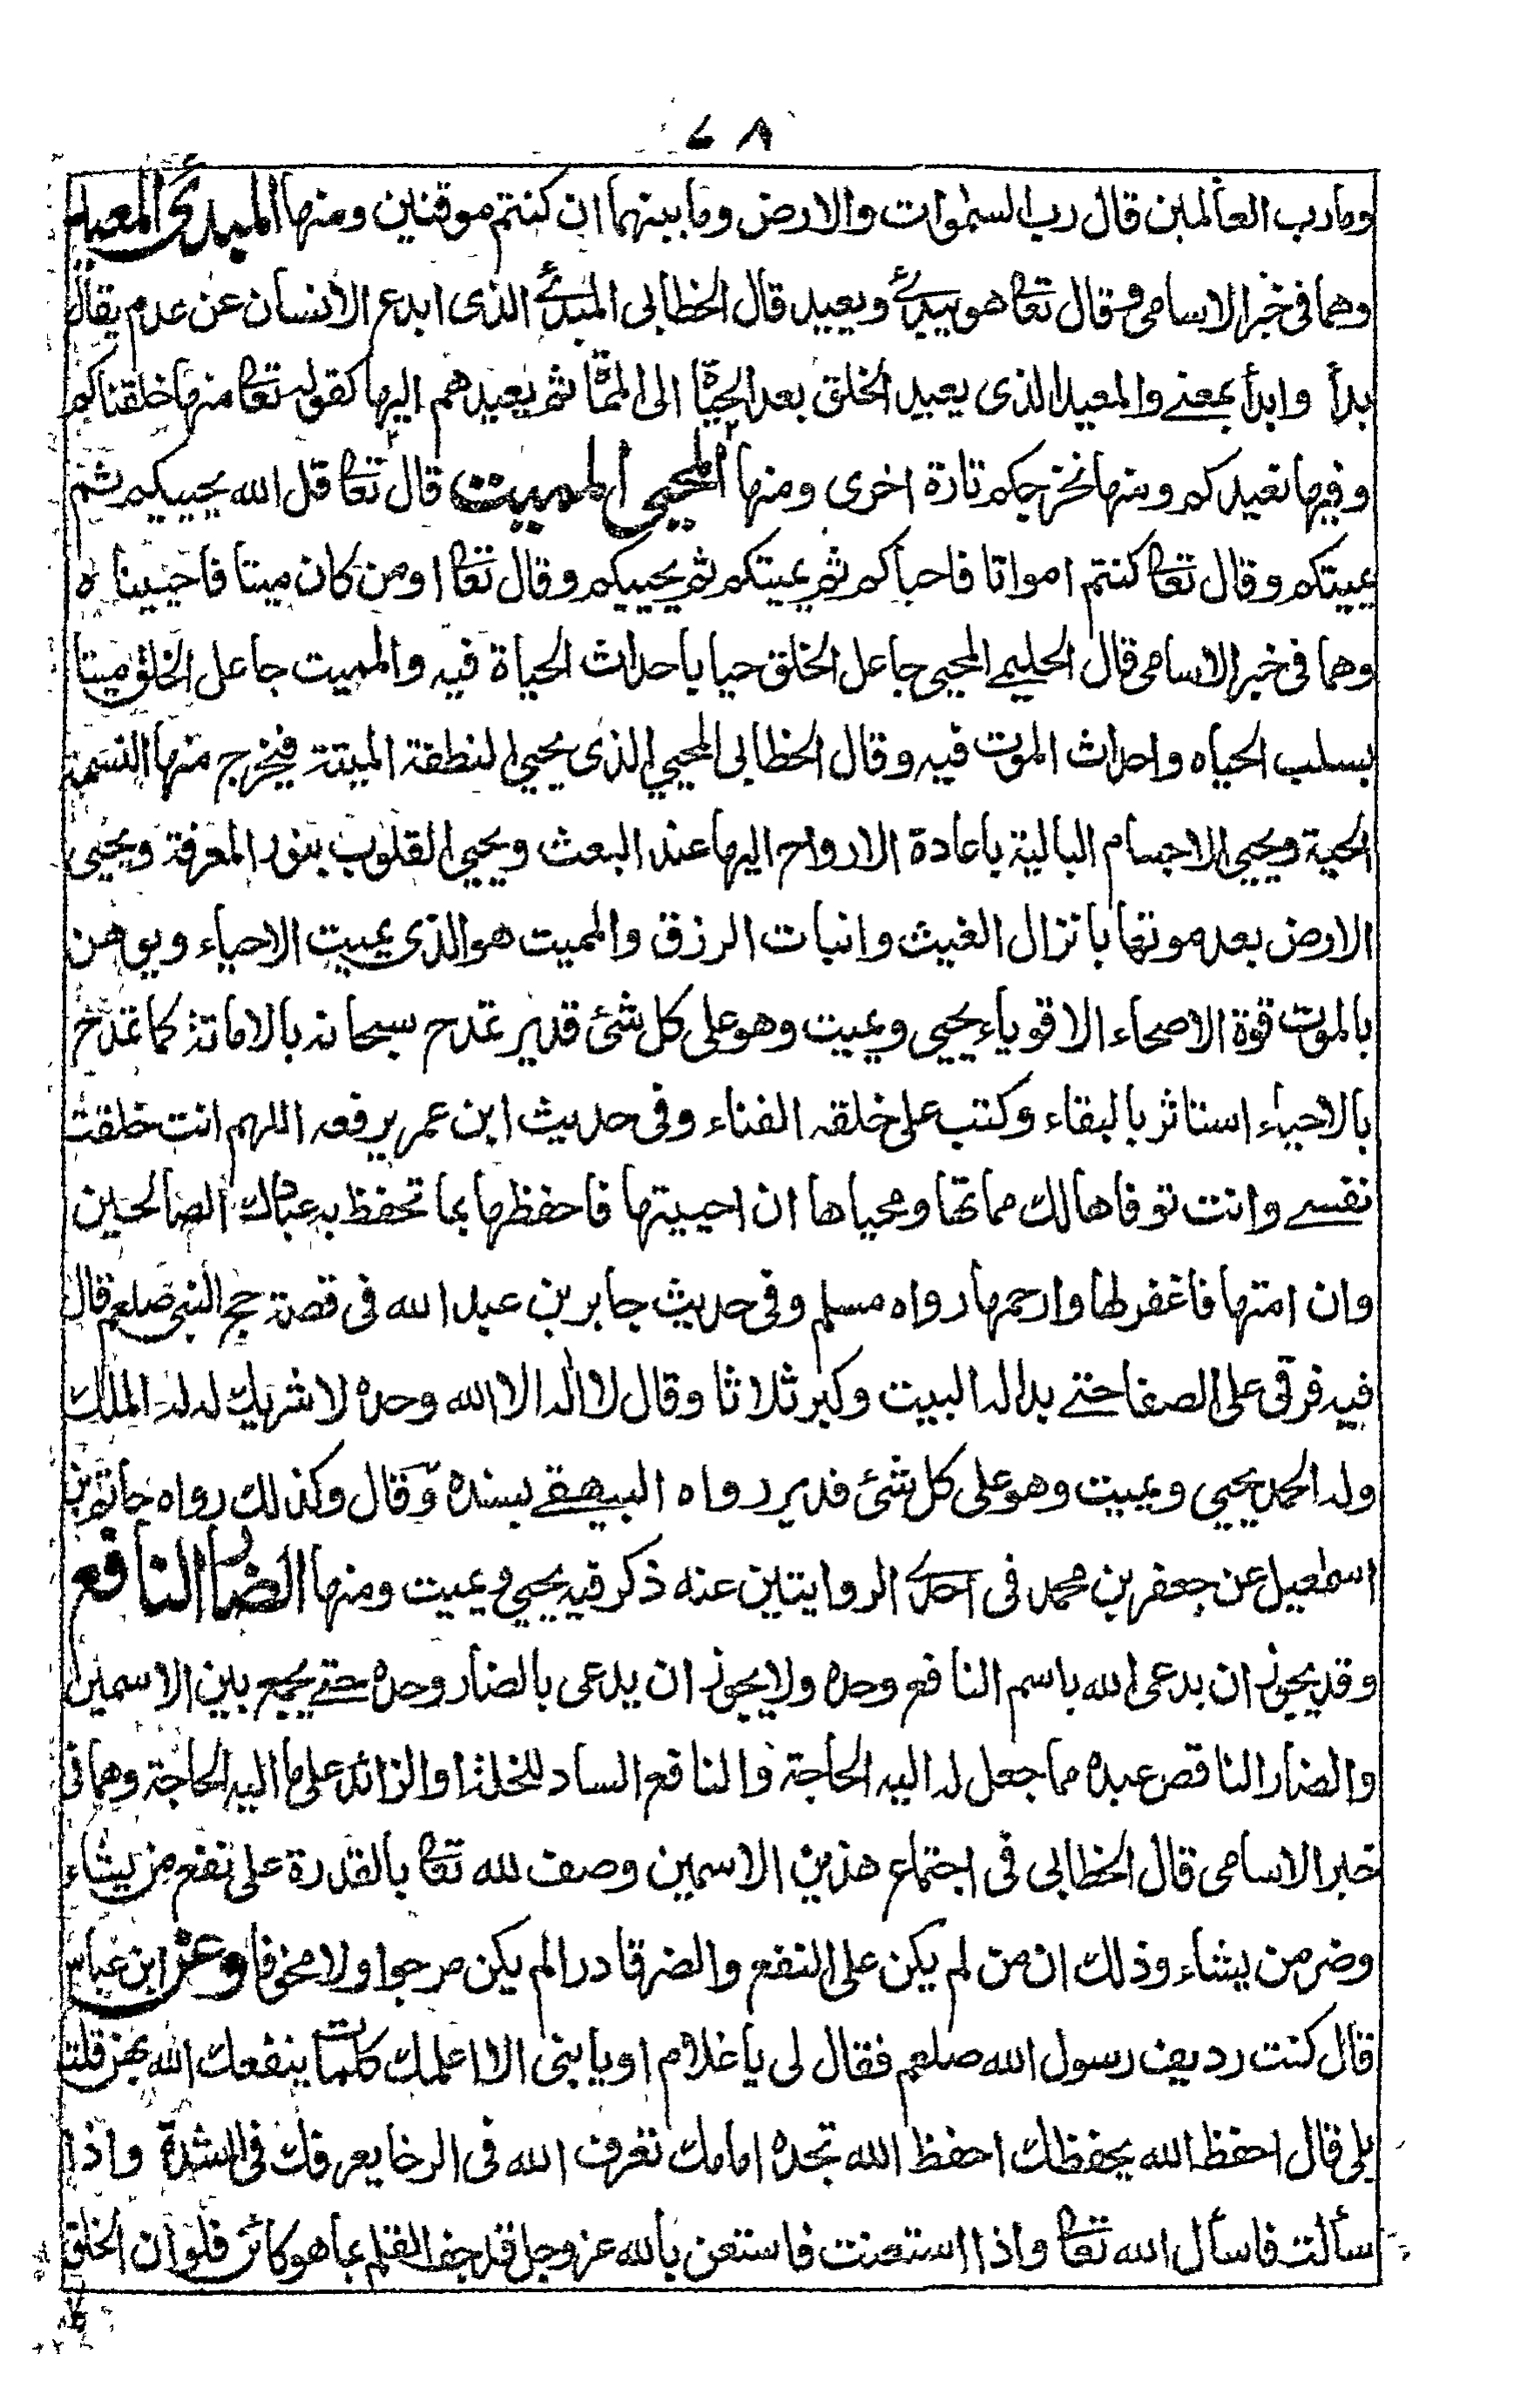 ٦٨
وما رب العالمين قال رب السموات والارض وما بينهما ان كنتم موقنين ومنها المبدئ المعيد
وهما فى خبر الاسامى وقال تعا هو يبدئ ويعيد قال الخطابى المبدئ الذى ابدع الانسان عن عدم يقال
بدأ وابدأ بمعنے والمعيد الذى يعيد الخلق بعد الحيٰوة الى المماة ثم يعيدهم اليها كقوله تعا منها خلقناكم
وفيها نعيدكم ومنها نخرجكم تارة اخرى ومنها المحيى المميت قال تعا قل الله يحييكم ثم
يميتكم وقال تعا كنتم امواتا فاحياكم ثم يميتكم ثم يحييكم وقال تعا اومن كان ميتا فاحييناه
وهما فى خبر الاسامى قال الحليمے المحيى جاعل الخلق حيا باحداث الحياة فيه والمميت جاعل الخلق ميتا
بسلب الحياه واحداث الموت فيه وقال الخطابى المحيي الذى يحيي النطفة الميتة فيخرج منها النسمة
الحية ويحيى الاجسام البالية باعادة الارواح اليها عند البعث ويحيي القلوب بنور المعرفة ويحيى
الارض بعد موتها بانزال الغيث وانبات الرزق والمميت هو الذى يميت الاحياء ويوهن
بالموت قوة الاصحاء الاقوياء يحيى ويميت وهو على كل شئ قدير تمدح سبحانه بالاماتة كما تمدح
بالاحياء استاثر بالبقاء وكتب على خلقه الفناء وفى حديث ابن عمر يرفعه اللهم انت خلقت
نفسے وانت توفاها لك مماتها ومحياها ان احييتها فاحفظها بما تحفظ به عبادك الصالحين
وان امتها فاغفر لها وارحمها رواه مسلم وفى حديث جابر بن عبد الله فى قصة حج النبى صلعم قال
فيه فرقى على الصفا حتے بدا له البيت وكبر ثلاثا وقال لا اله الا الله وحده لا شريك له له الملك
وله الحمد يحيي ويميت وهو على كل شئ قدير رواه البيهقے بسنده وقال وكذلك رواه حاتم بن
اسمعيل عن جعفر بن محمد فى احدى الروايتين عنه ذكر فيه يحيي ويميت ومنها الضار النافع
وقد يجوز ان يدعى الله باسم النافع وحده ولا يجوز ان يدعى بالضار وحده حتے يجمع بين الاسمين
والضار الناقص عبده مما جعل له اليه الحاجة والنافع الساد للخلة او الزائد على ما اليه الحاجة وهما فى
خبر الاسامى قال الخطابى فى اجتماع هذين الاسمين وصف لله تعا بالقدرة على نفع من يشاء
وضر من يشاء وذلك ان من لم يكن على النفع والضر قادرا لم يكن مرجوا ولا مخوفا وعن ابن عباس
قال كنت رديف رسول الله صلعم فقال لى يا غلام او يا بنى الا اعلمك كلمات ينفعك الله بهن قلت
بلى قال احفظ الله يحفظك احفظ الله تجده امامك تعرف الله فى الرخا يعرفك فى الشدة واذا
سألت فاسأل الله تعا واذا استعنت فاستعن بالله عز وجل قد جف القلم بما هو كائن فلو ان الخلق